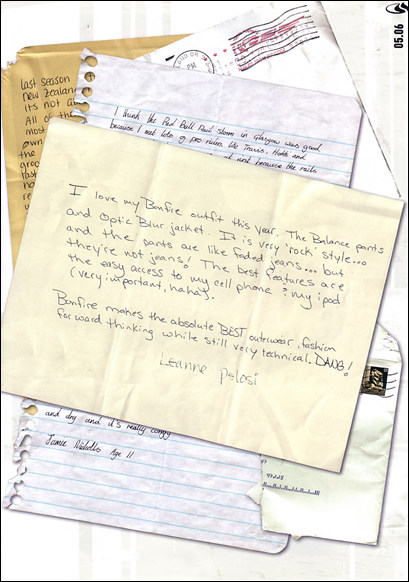 05.06
PM
last season
new zealan
it's not a
All of th
most
own
the
I think the Red Bull Rail storm in Glasgow was good
because I met lots of pro riders like Travis, Heikki and
and because the rails
I love my Bonfire outfit this year. The Balance pants
and Optic Blur jacket. It is very 'rock' style...
and the pants are like faded jeans... but
they're not jeans! The best features are
the easy access to my cell phone & my ipod
(very important, haha).
Bonfire makes the absolute BEST outerwear, fashion
forward thinking while still very technical. DANG!
Leanne Pelosi
and dry and it's really comfy
Jamie Nicholls Age 11